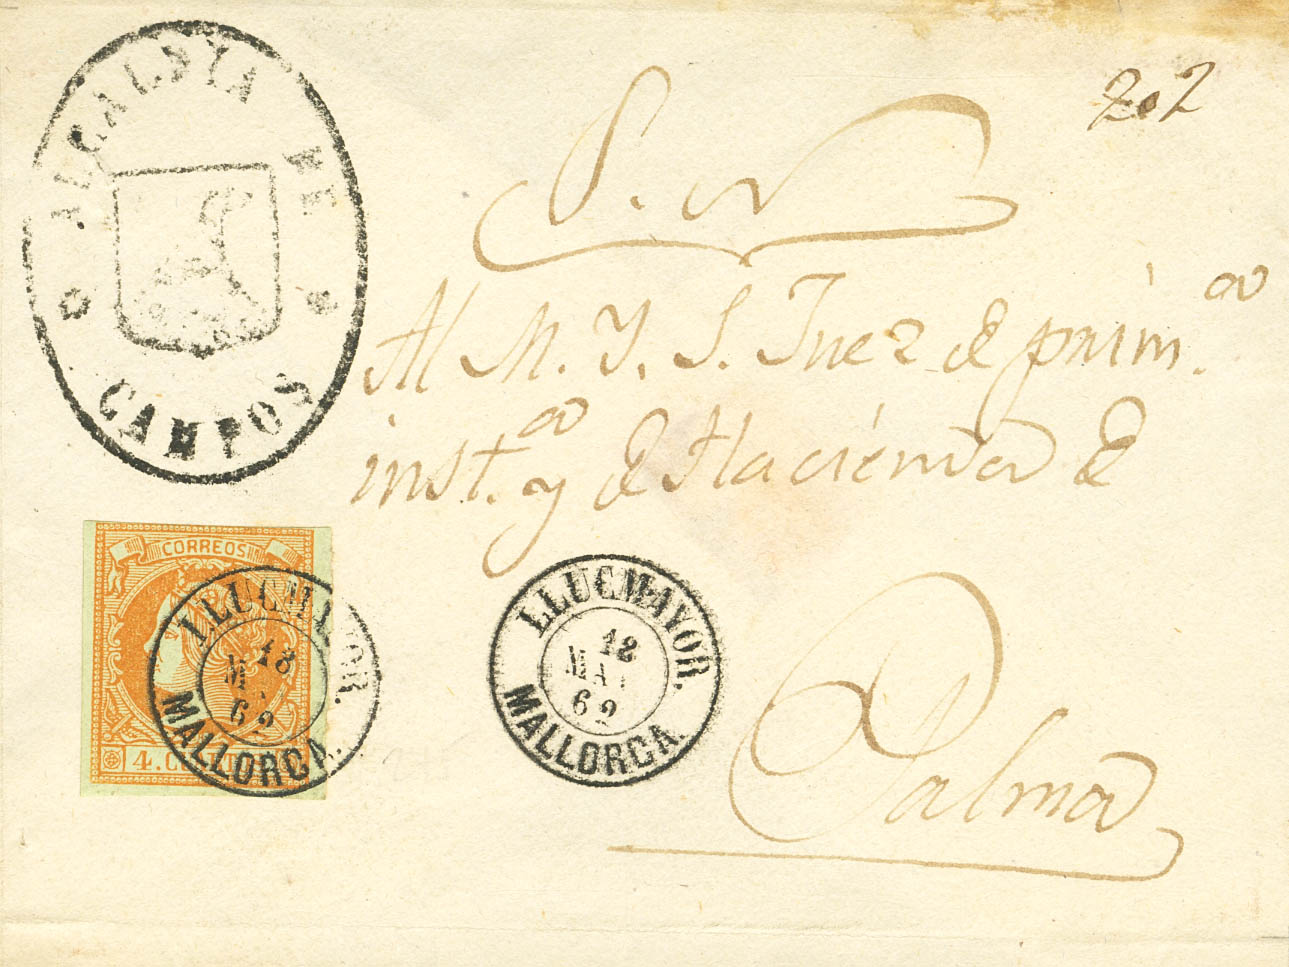 ALCALDÍA DE
CAMPOS
202
S. N
Al M. Y. S. Juez de prim.a
inst.a y de Hacienda de
Palma
CORREOS
4. C
LLUCMAYOR.
18
M
62
MALLORCA.
LLUCMAYOR.
18
MA
62
MALLORCA